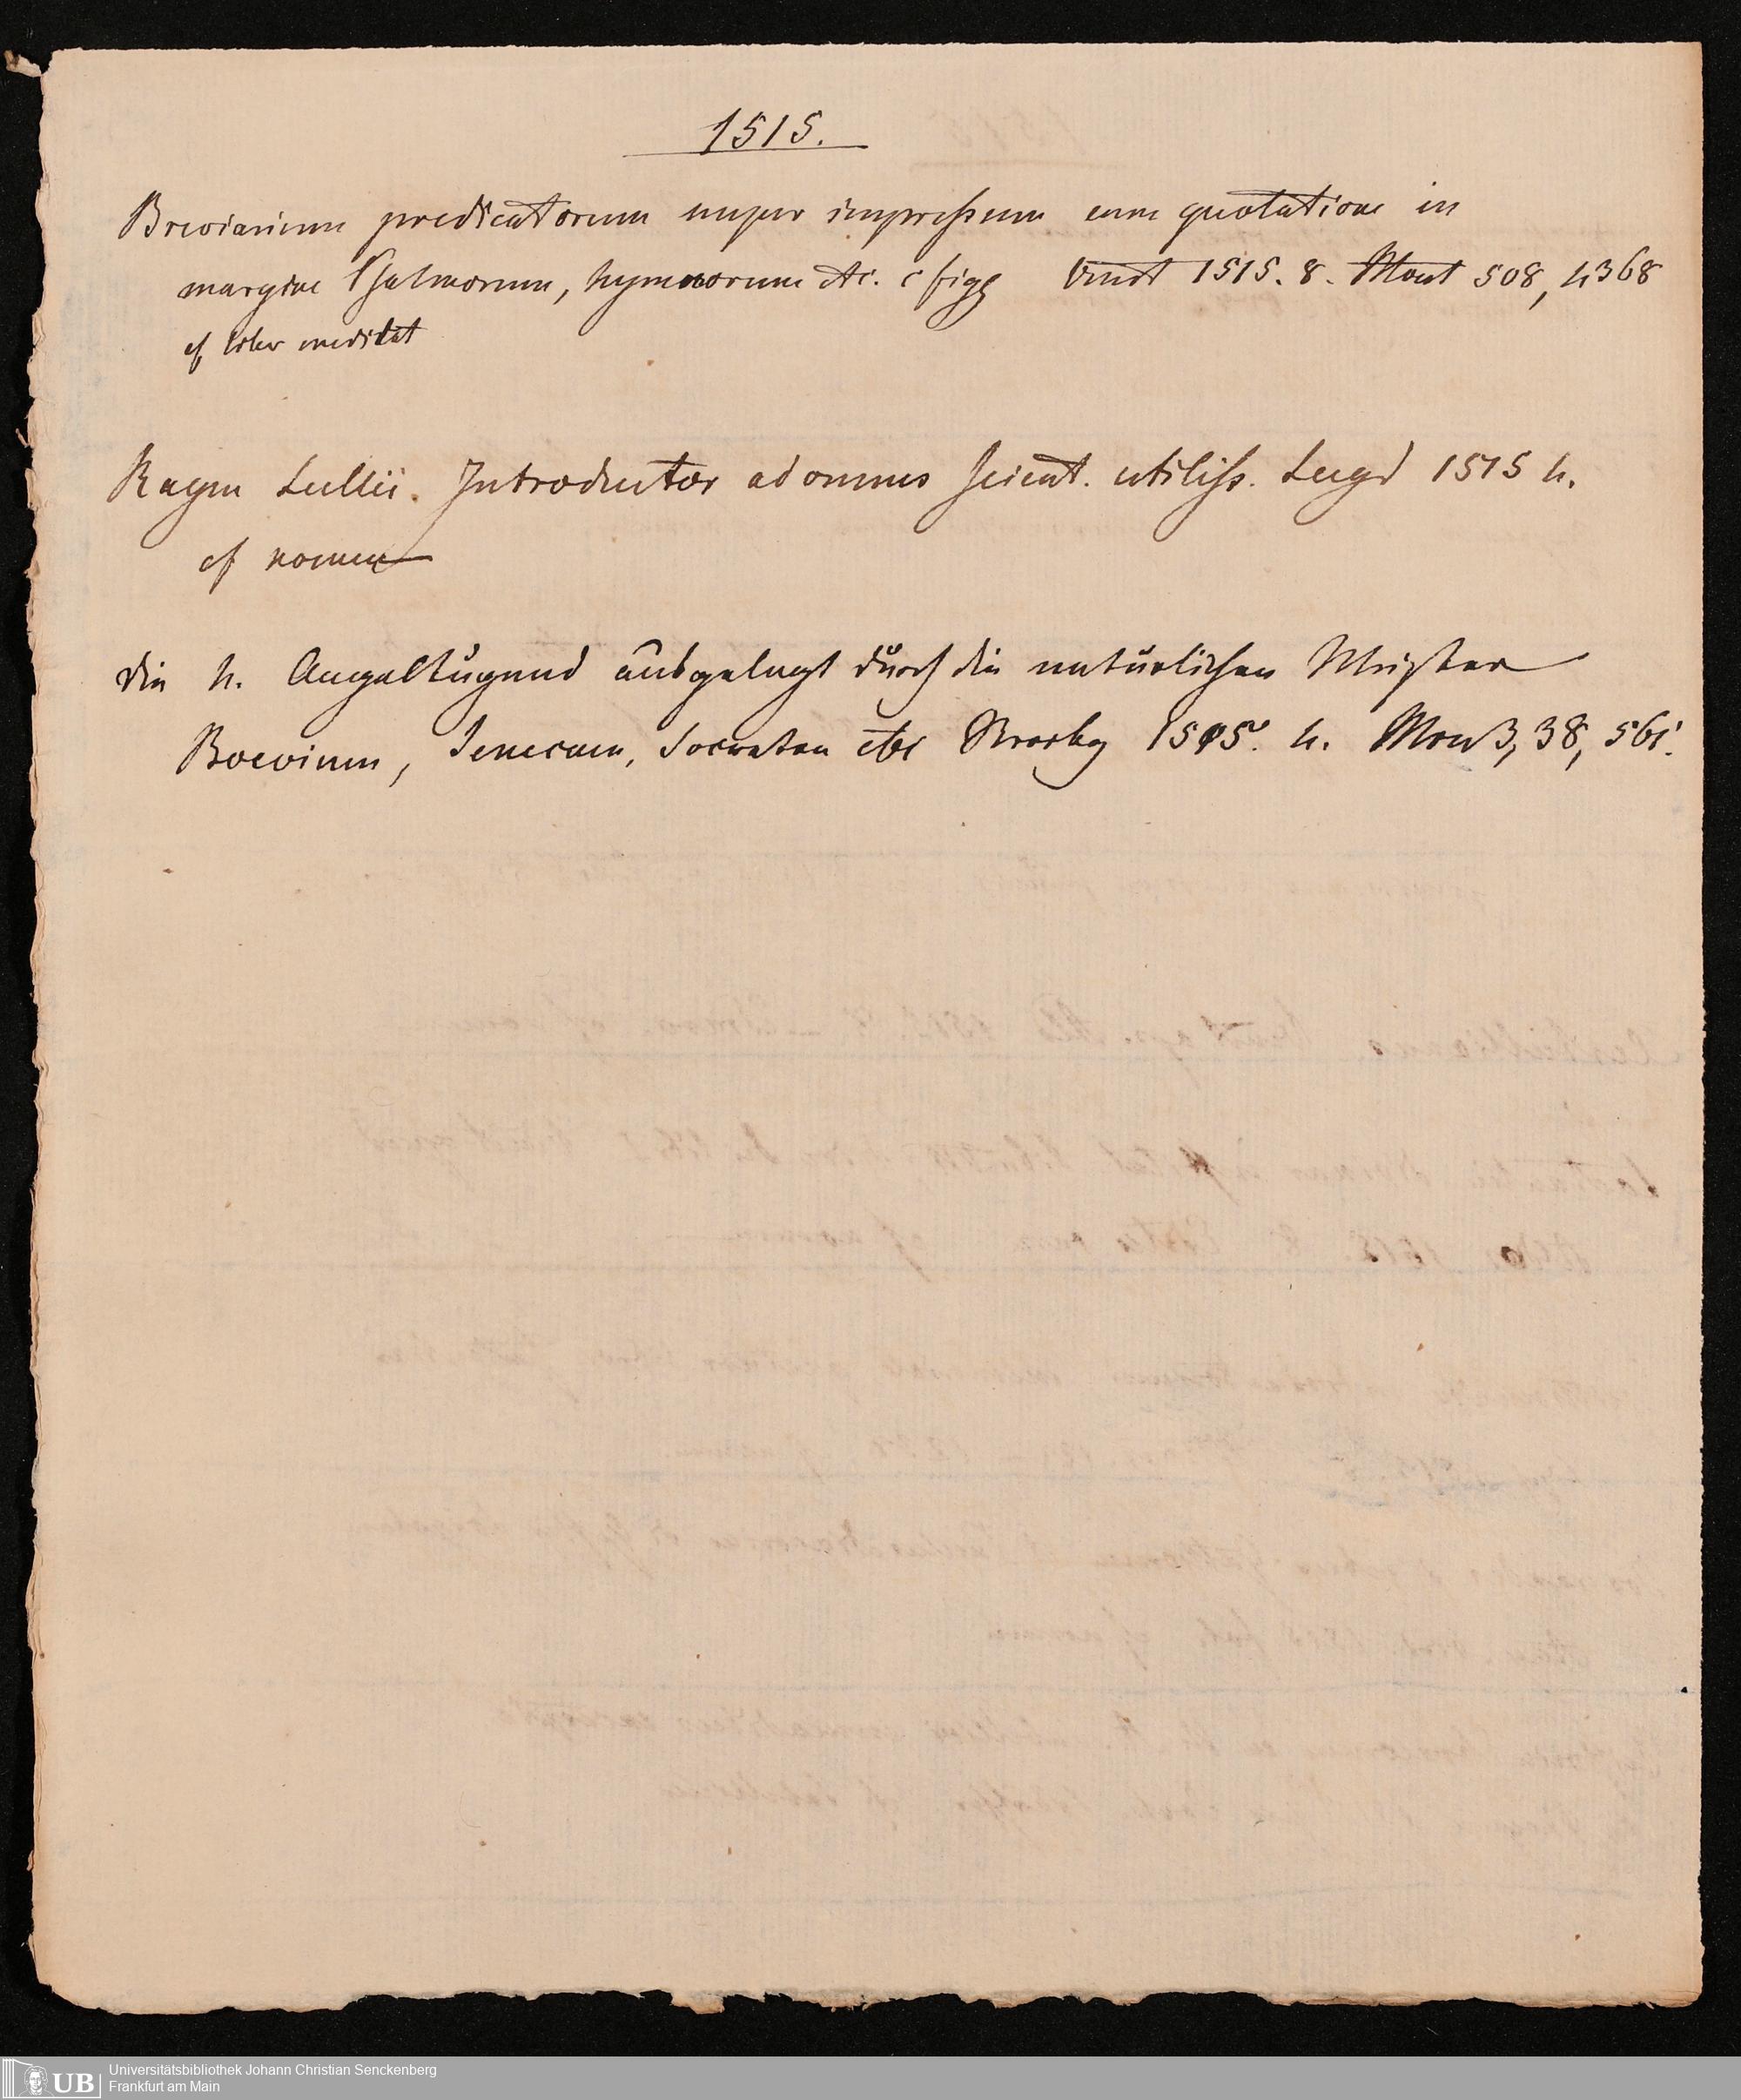 1515.
Breviarium predicatorum nuper impressum cum quotatione in
margine Psalmorum, hymnorum etc. c figg Venet 1515. 8. Mont 508, 4368
cf liber meditat
Raym Lullii. Introductor ad omnes scient. utiliss. Lugd 1515 4.
cf nomen
die 4. Angeltugend ausgelegt durch die natürlichen Meister
Boevium, Senecam, Socraten etc Strasbg 1515. 4. Mon 3, 38,
Universitätsbibliothek Johann Christian Senckenberg
Frankfurt am Main
UB